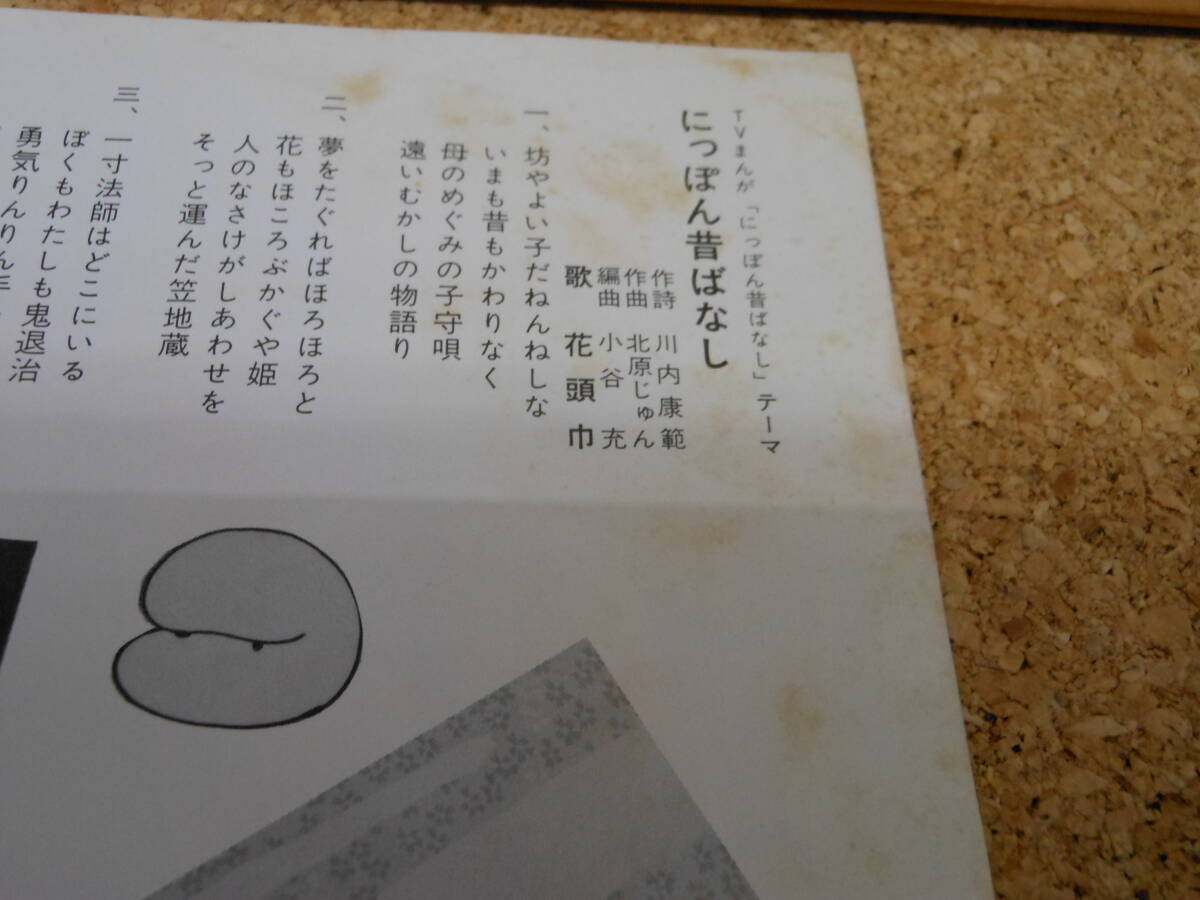 TVまんが「にっぽん昔ばなし」テーマ
にっぽん昔ばなし
作詩 川内康範
作曲 北原じゅん
編曲 小谷 充
歌 花頭巾
一、坊やよい子だねんねしな
いまも昔もかわりなく
母のめぐみの子守唄
遠いむかしの物語り
二、夢をたぐればほろほろと
花もほころぶかぐや姫
人のなさけがしあわせを
そっと運んだ笠地蔵
三、一寸法師はどこにいる
ぼくもわたしも鬼退治
勇気りんりん手